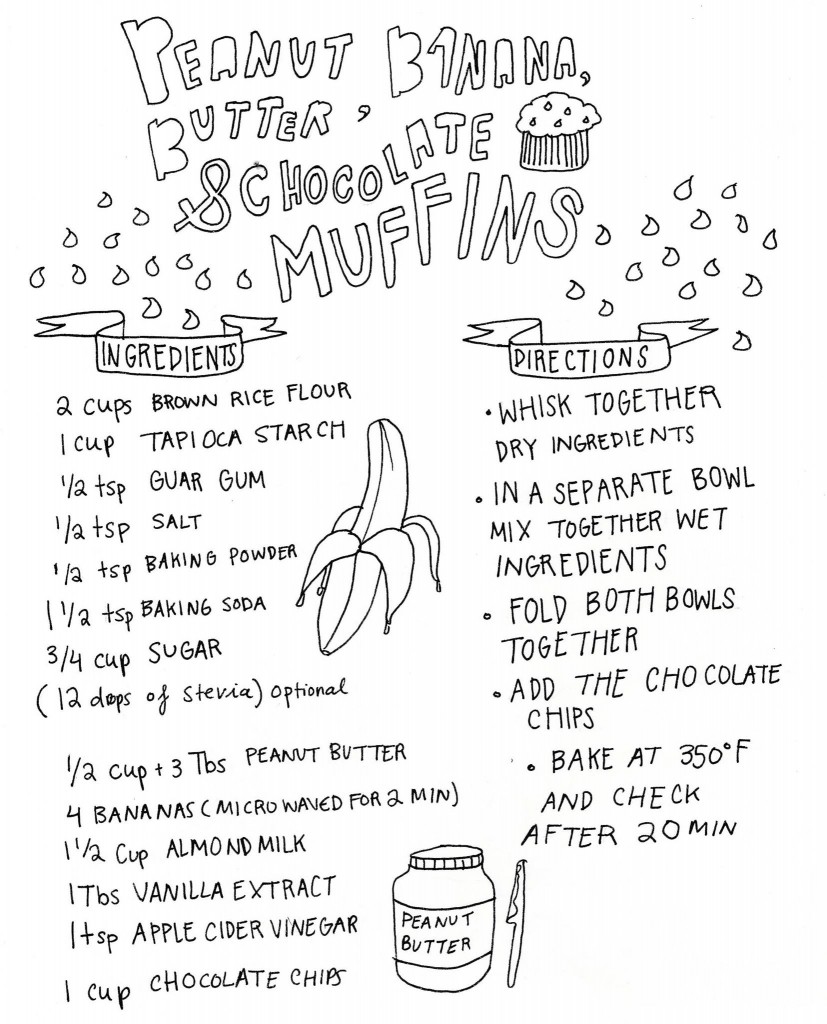 PEANUT BANANA,
BUTTER,
& CHOCOLATE
MUFFINS
INGREDIENTS
2 cups BROWN RICE FLOUR
1 cup TAPIOCA STARCH
1/2 tsp GUAR GUM
1/2 tsp SALT
1/2 tsp BAKING POWDER
1 1/2 tsp BAKING SODA
3/4 cup SUGAR
(12 drops of stevia) optional
1/2 cup + 3 Tbs PEANUT BUTTER
4 BANANAS (MICROWAVED FOR 2 MIN)
1 1/2 Cup ALMOND MILK
1 Tbs VANILLA EXTRACT
1 tsp APPLE CIDER VINEGAR
1 cup CHOCOLATE CHIPS
DIRECTIONS
• WHISK TOGETHER
DRY INGREDIENTS
• IN A SEPARATE BOWL
MIX TOGETHER WET
INGREDIENTS
• FOLD BOTH BOWLS
TOGETHER
• ADD THE CHOCOLATE
CHIPS
• BAKE AT 350°F
AND CHECK
AFTER 20 MIN
PEANUT
BUTTER